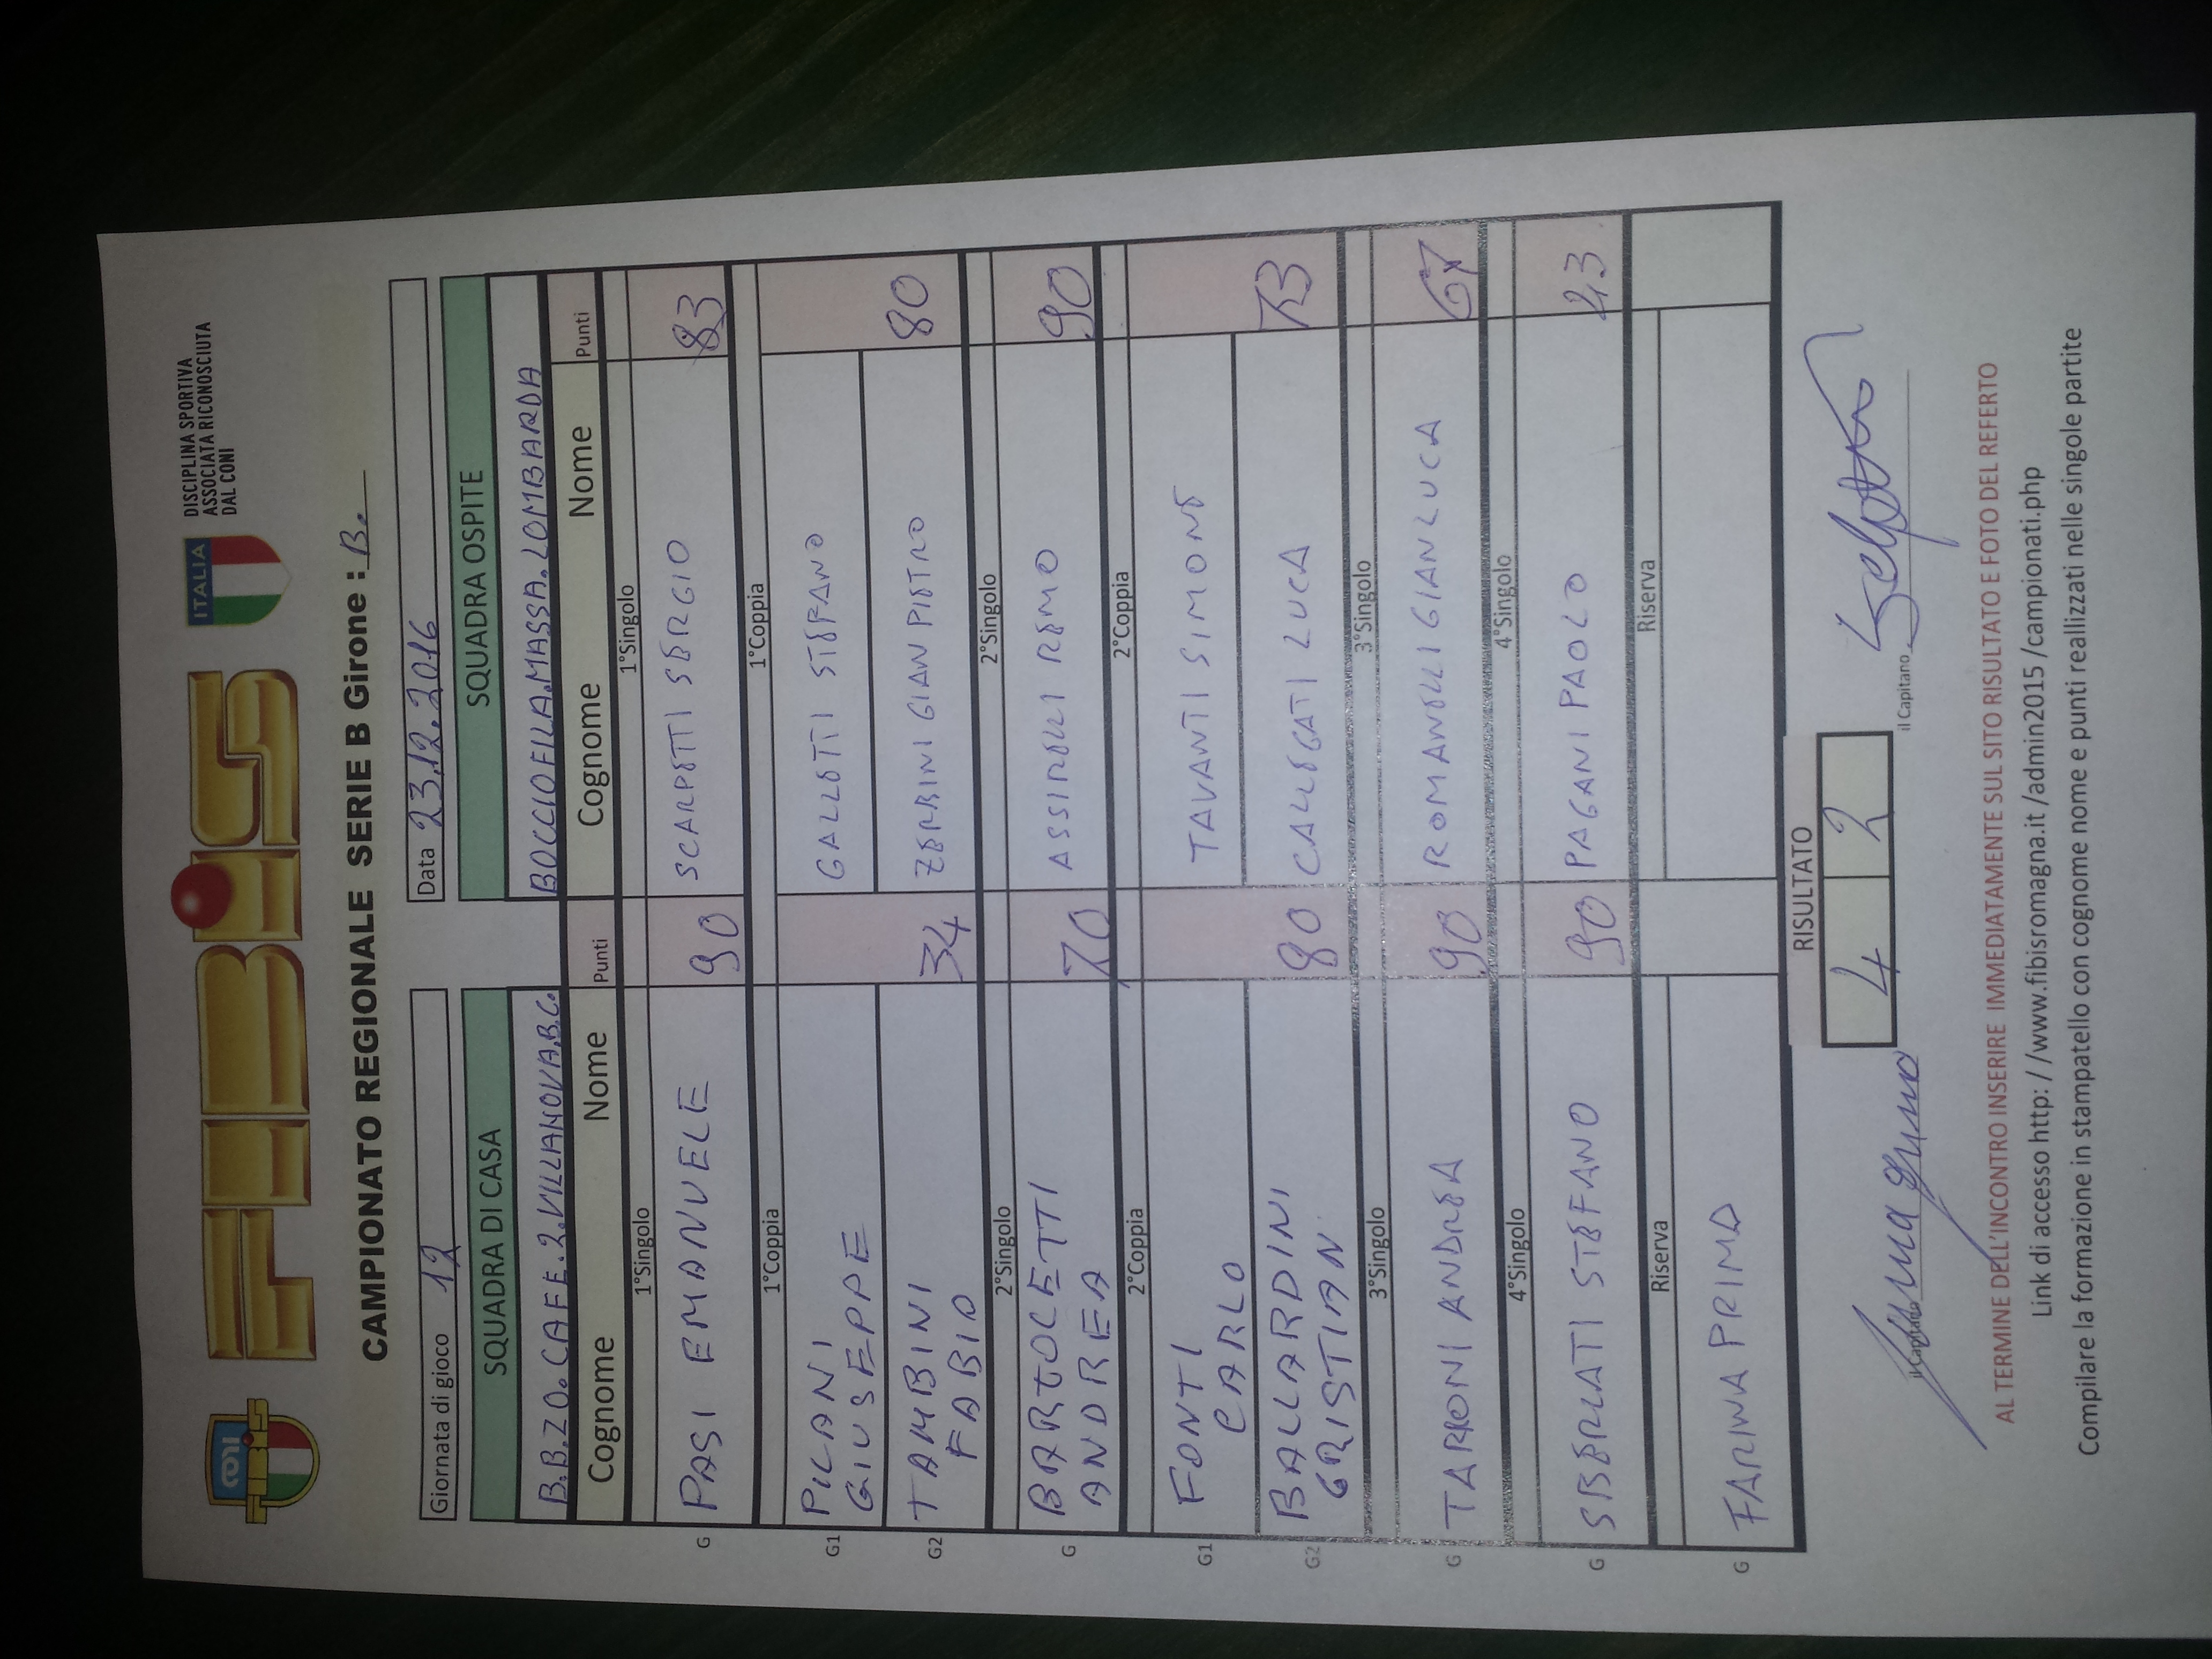 FIBIS
ITALIA
DISCIPLINA SPORTIVA
ASSOCIATA RICONOSCIUTA
DAL CONI
CAMPIONATO REGIONALE SERIE B Girone : B.
Giornata di gioco 12 Data 23.12.2016
SQUADRA DI CASA SQUADRA OSPITE
B.B.ZO.CAFE.2.VILLANOVA.B.C. BOCCIOFILA.MASSA.LOMBARDA
Cognome Nome Punti Cognome Nome Punti
1°Singolo 1°Singolo
G PASI EMANUELE 90 SCARPETTI SERGIO 83
1°Coppia 1°Coppia
G1 PILANI GALLETTI STEFANO
GIUSEPPE
G2 TAMBINI 34 ZERBINI GIAN PIETRO 80
FABIO
2°Singolo 2°Singolo
G BARTOLETTI 70 ASSIRELLI REMO 90
ANDREA
2°Coppia 2°Coppia
G1 FONTI TAVANTI SIMONE
CARLO
G2 BALLARDINI 80 CALLEGATI LUCA 73
CRISTIAN
3°Singolo 3°Singolo
G TARRONI ANDREA 90 ROMANELLI GIANLUCA 67
4°Singolo 4°Singolo
G STEFANO 90 PAGANI PAOLO 43
Riserva Riserva
G FARINA PRIMO
RISULTATO
4 2
il Capitano il Capitano
AL TERMINE DELL'INCONTRO INSERIRE IMMEDIATAMENTE SUL SITO RISULTATO E FOTO DEL REFERTO
Link di accesso http: / /www.fibisromagna.it /admin2015 /campionati.php
Compilare la formazione in stampatello con cognome nome e punti realizzati nelle singole partite